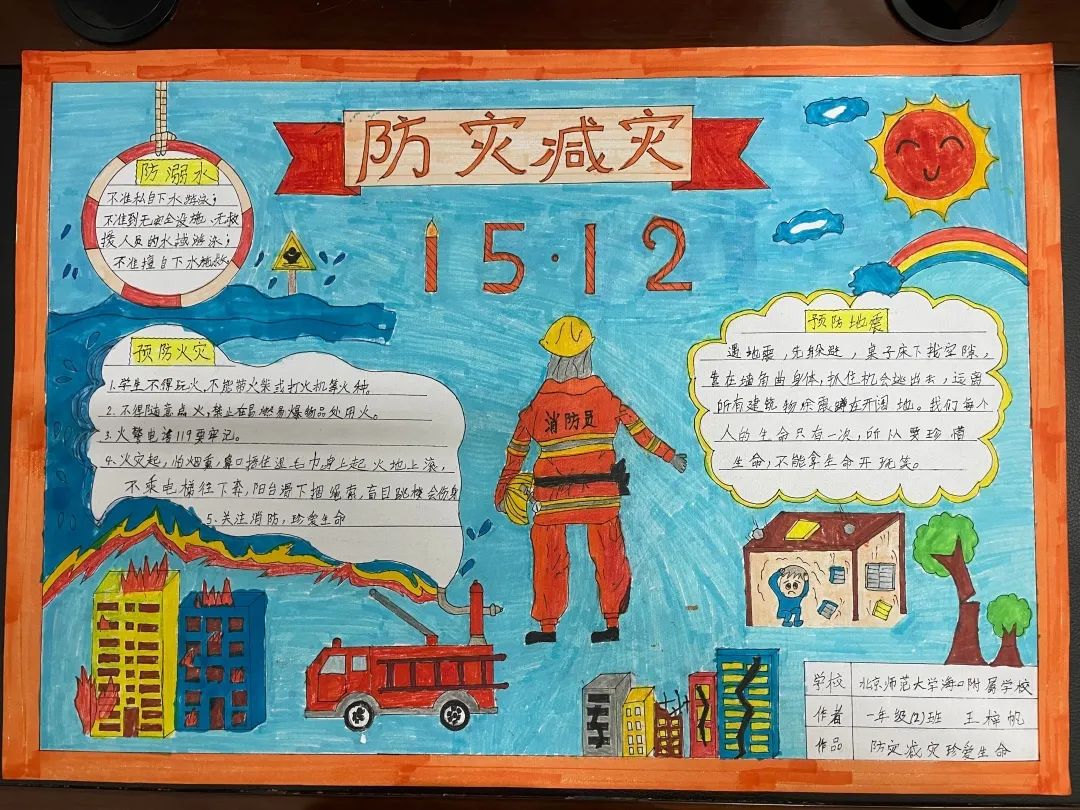 防灾减灾
15·12
防溺水
不准私自下水游泳；
不准到无安全设施、无救
援人员的水域游泳；
不准擅自下水施救。
预防火灾
1.学生不得玩火,不能带火柴或打火机等火种。
2.不得随意点火,禁止在易燃易爆物品处用火。
3.火警电话119要牢记。
4.火灾起,怕烟熏,鼻口捂住湿毛巾,身上起火地上滚,
不乘电梯往下奔,阳台滑下捆绳索,盲目跳楼会伤身
5.关注消防,珍爱生命
消防员
预防地震
遇地震,先躲避,桌子床下找空隙,
靠在墙角曲身体,抓住机会逃出去,远离
所有建筑物,余震蹲在开阔地。我们每个
人的生命只有一次,所以要珍惜
生命,不能拿生命开玩笑。
学校 北京师范大学海口附属学校
作者 一年级(2)班 王梓帆
作品 防灾减灾珍爱生命